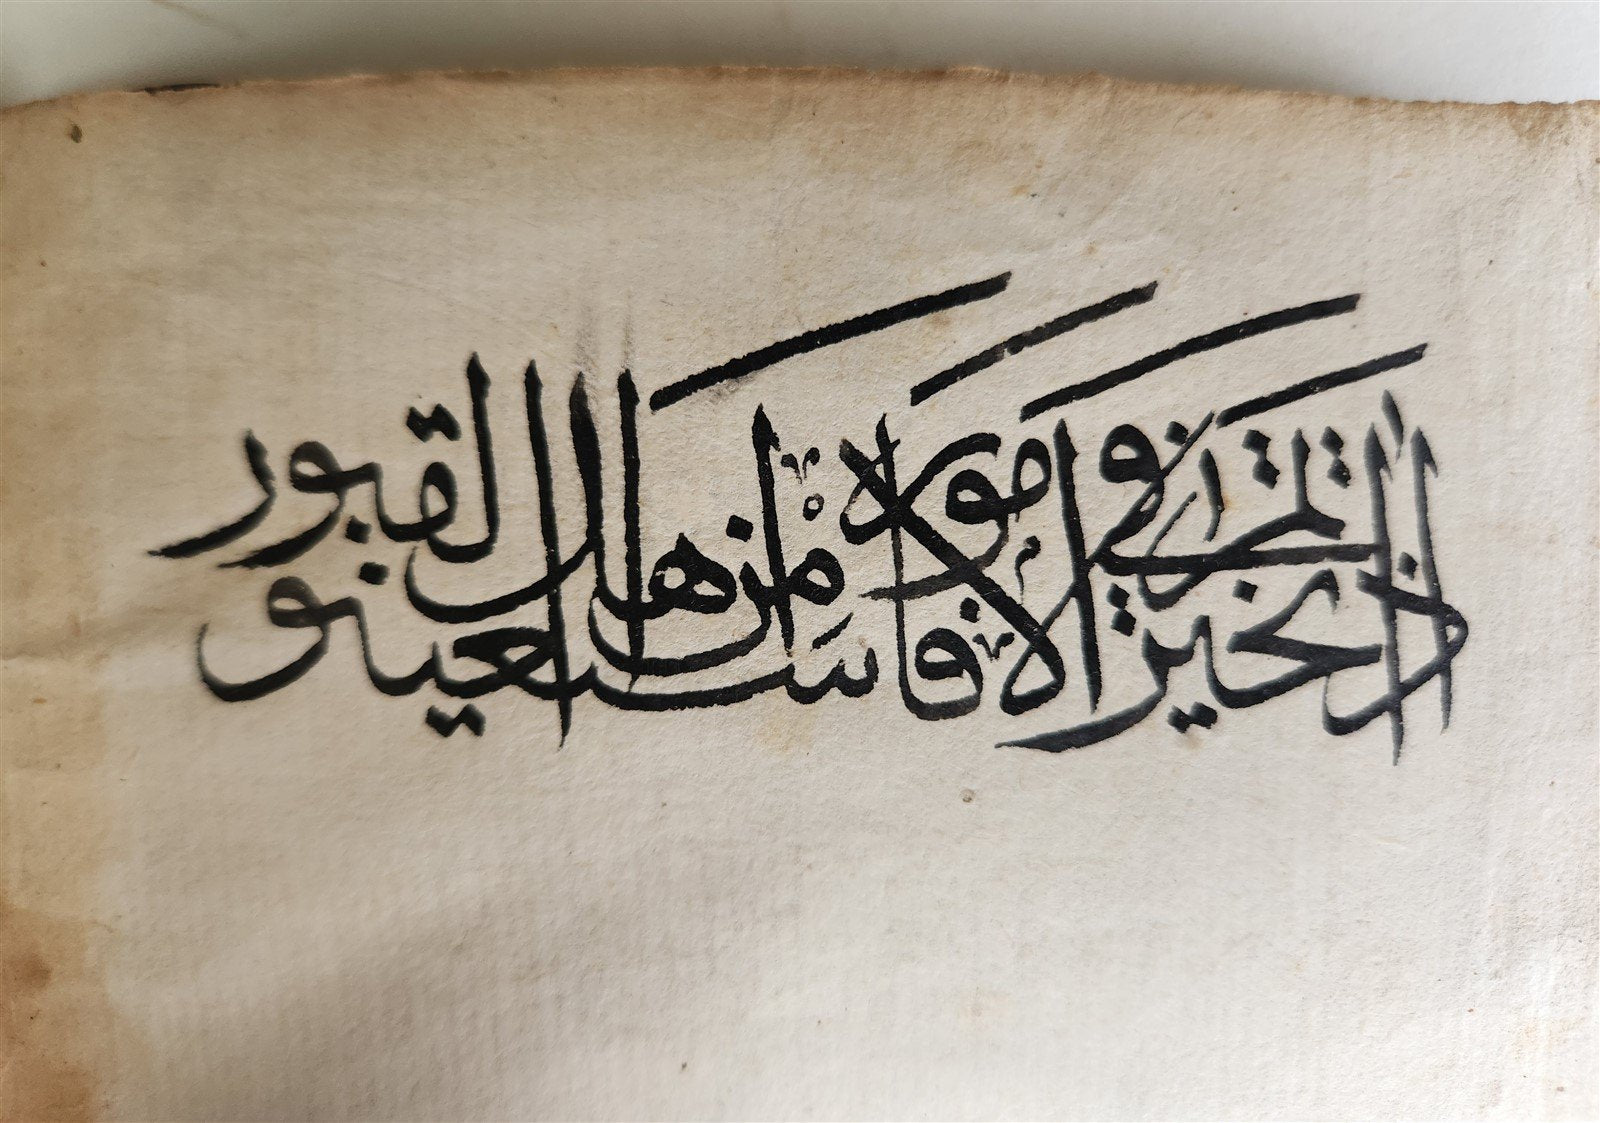 اذا تحيرتم في الامور فاستعينوا من اهل القبور